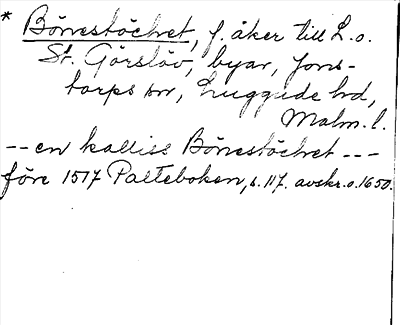 * Bönestöchet, f. åker till L. o.
St. Görslöv, byar, Jons-
torps sn, Luggude hd,
Malm. l.
-- en kalliss Bönestöchet ---
före 1517 Palteboken, s. 117. avskr. o. 1650.